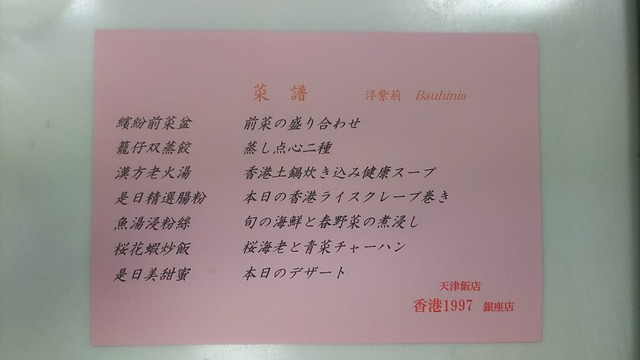 菜譜 洋紫荊 Bauhinia
繽紛前菜盆 前菜の盛り合わせ
籠仔双蒸餃 蒸し点心二種
漢方老火湯 香港土鍋炊き込み健康スープ
是日精選腸粉 本日の香港ライスクレープ巻き
魚湯浸粉絲 旬の海鮮と春野菜の煮浸し
桜花蝦炒飯 桜海老と青菜チャーハン
是日美甜蜜 本日のデザート
天津飯店
香港1997 銀座店